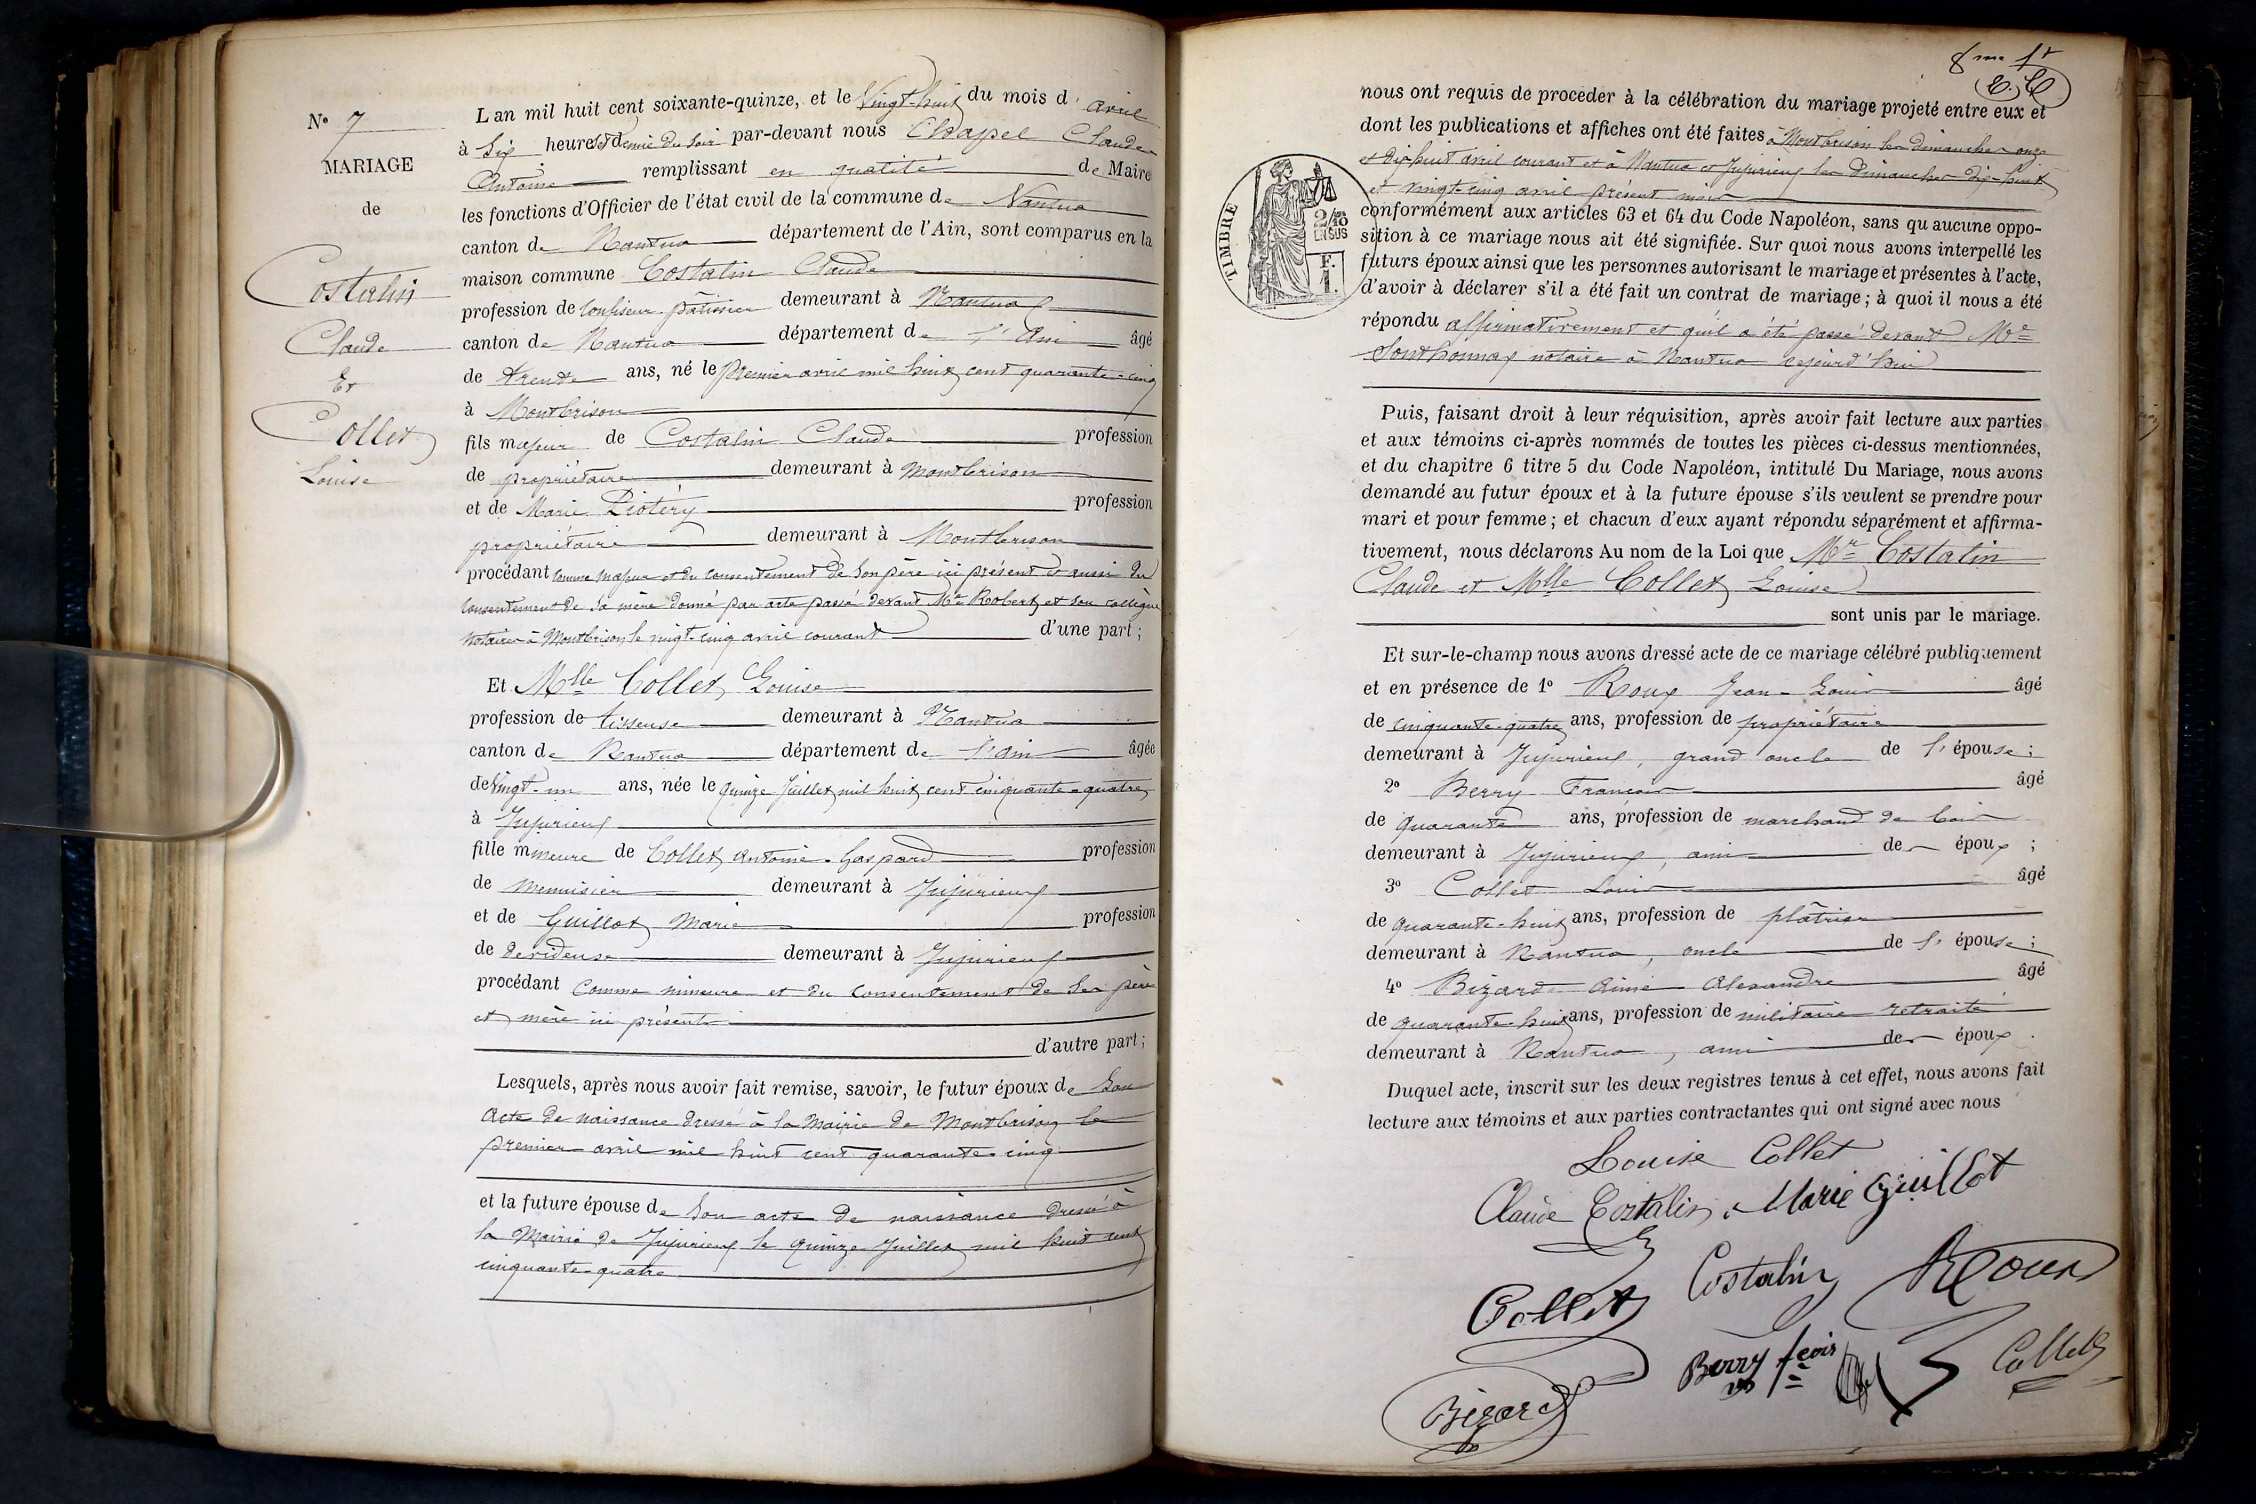 N° 7
MARIAGE
de
Costalin
Claude
Et
Collet
Louise
L an mil huit cent soixante-quinze, et le Vingt-huit du mois d' avril
à Six heures et demie du soir par-devant nous Chapel Claude
Antoine remplissant en qualité de Maire
les fonctions d'Officier de l'état civil de la commune de Nantua
canton de Nantua département de l'Ain, sont comparus en la
maison commune Costalin Claude
profession de confiseur-pâtissier demeurant à Nantua
canton de Nantua département de l'Ain âgé
de trente ans, né le premier avril mil huit cent quarante-cinq
à Montbrison
fils majeur de Costalin Claude profession
de propriétaire demeurant à Montbrison
et de Marie profession
propriétaire demeurant à Montbrison
procédant comme majeur et du consentement de son père ici présent et aussi du
consentement de sa mère donné par acte passé devant Me Robert et son collègue
notaires à Montbrison le vingt-cinq avril courant d'une part;
Et Mlle Collet Louise
profession de tisseuse demeurant à Nantua
canton de Nantua département de l'ain âgée
de vingt-un ans, née le quinze Juillet mil huit cent cinquante-quatre
à Jujurieux
fille mineure de Collet Antoine-Gaspard profession
de menuisier demeurant à Jujurieux
et de Guillot Marie profession
de devideuse demeurant à Jujurieux
procédant comme mineure et du consentement de ses père
et mère ici présents
d'autre part;
Lesquels, après nous avoir fait remise, savoir, le futur époux de Son
acte de naissance dressé à la Mairie de Montbrison le
premier avril mil huit cent quarante-cinq
et la future épouse de Son acte de naissance dressé à
la Mairie de Jujurieux le quinze Juillet mil huit cent
cinquante-quatre
nous ont requis de procéder à la célébration du mariage projeté entre eux et
dont les publications et affiches ont été faites à Montbrison les dimanches onze
et dix-huit avril courant et à Nantua et Jujurieux les Dimanches dix-huit
et vingt-cinq avril présent mois
TIMBRE
2/10 EN SUS
F. 1.
conformément aux articles 63 et 64 du Code Napoléon, sans qu aucune oppo-
sition à ce mariage nous ait été signifiée. Sur quoi nous avons interpellé les
futurs époux ainsi que les personnes autorisant le mariage et présentes à l'acte,
d'avoir à déclarer s'il a été fait un contrat de mariage; à quoi il nous a été
répondu affirmativement et qu'il a été passé devant Me
Sonthonnax notaire à Nantua cejourd'hui
Puis, faisant droit à leur réquisition, après avoir fait lecture aux parties
et aux témoins ci-après nommés de toutes les pièces ci-dessus mentionnées,
et du chapitre 6 titre 5 du Code Napoléon, intitulé Du Mariage, nous avons
demandé au futur époux et à la future épouse s'ils veulent se prendre pour
mari et pour femme; et chacun d'eux ayant répondu séparément et affirma-
tivement, nous déclarons Au nom de la Loi que Mr Costalin
Claude et Mlle Collet Louise
sont unis par le mariage.
Et sur-le-champ nous avons dressé acte de ce mariage célébré publiquement
et en présence de 1° Roux Jean-Louis âgé
de cinquante-quatre ans, profession de propriétaire
demeurant à Jujurieux, grand oncle de l'épouse;
2° Berry François âgé
de quarante ans, profession de marchand de bois
demeurant à Jujurieux, ami de époux;
3° Collet Louis âgé
de quarante-huit ans, profession de plâtrier
demeurant à Nantua, oncle de l'épouse;
4° Bizard Aimé Alexandre âgé
de quarante-huit ans, profession de militaire retraité
demeurant à Nantua, ami de époux.
Duquel acte, inscrit sur les deux registres tenus à cet effet, nous avons fait
lecture aux témoins et aux parties contractantes qui ont signé avec nous
Louise Collet
Claude Costalin Marie Guillot
Costalin Roux
Collet
Berry fçois Collet
Bizard